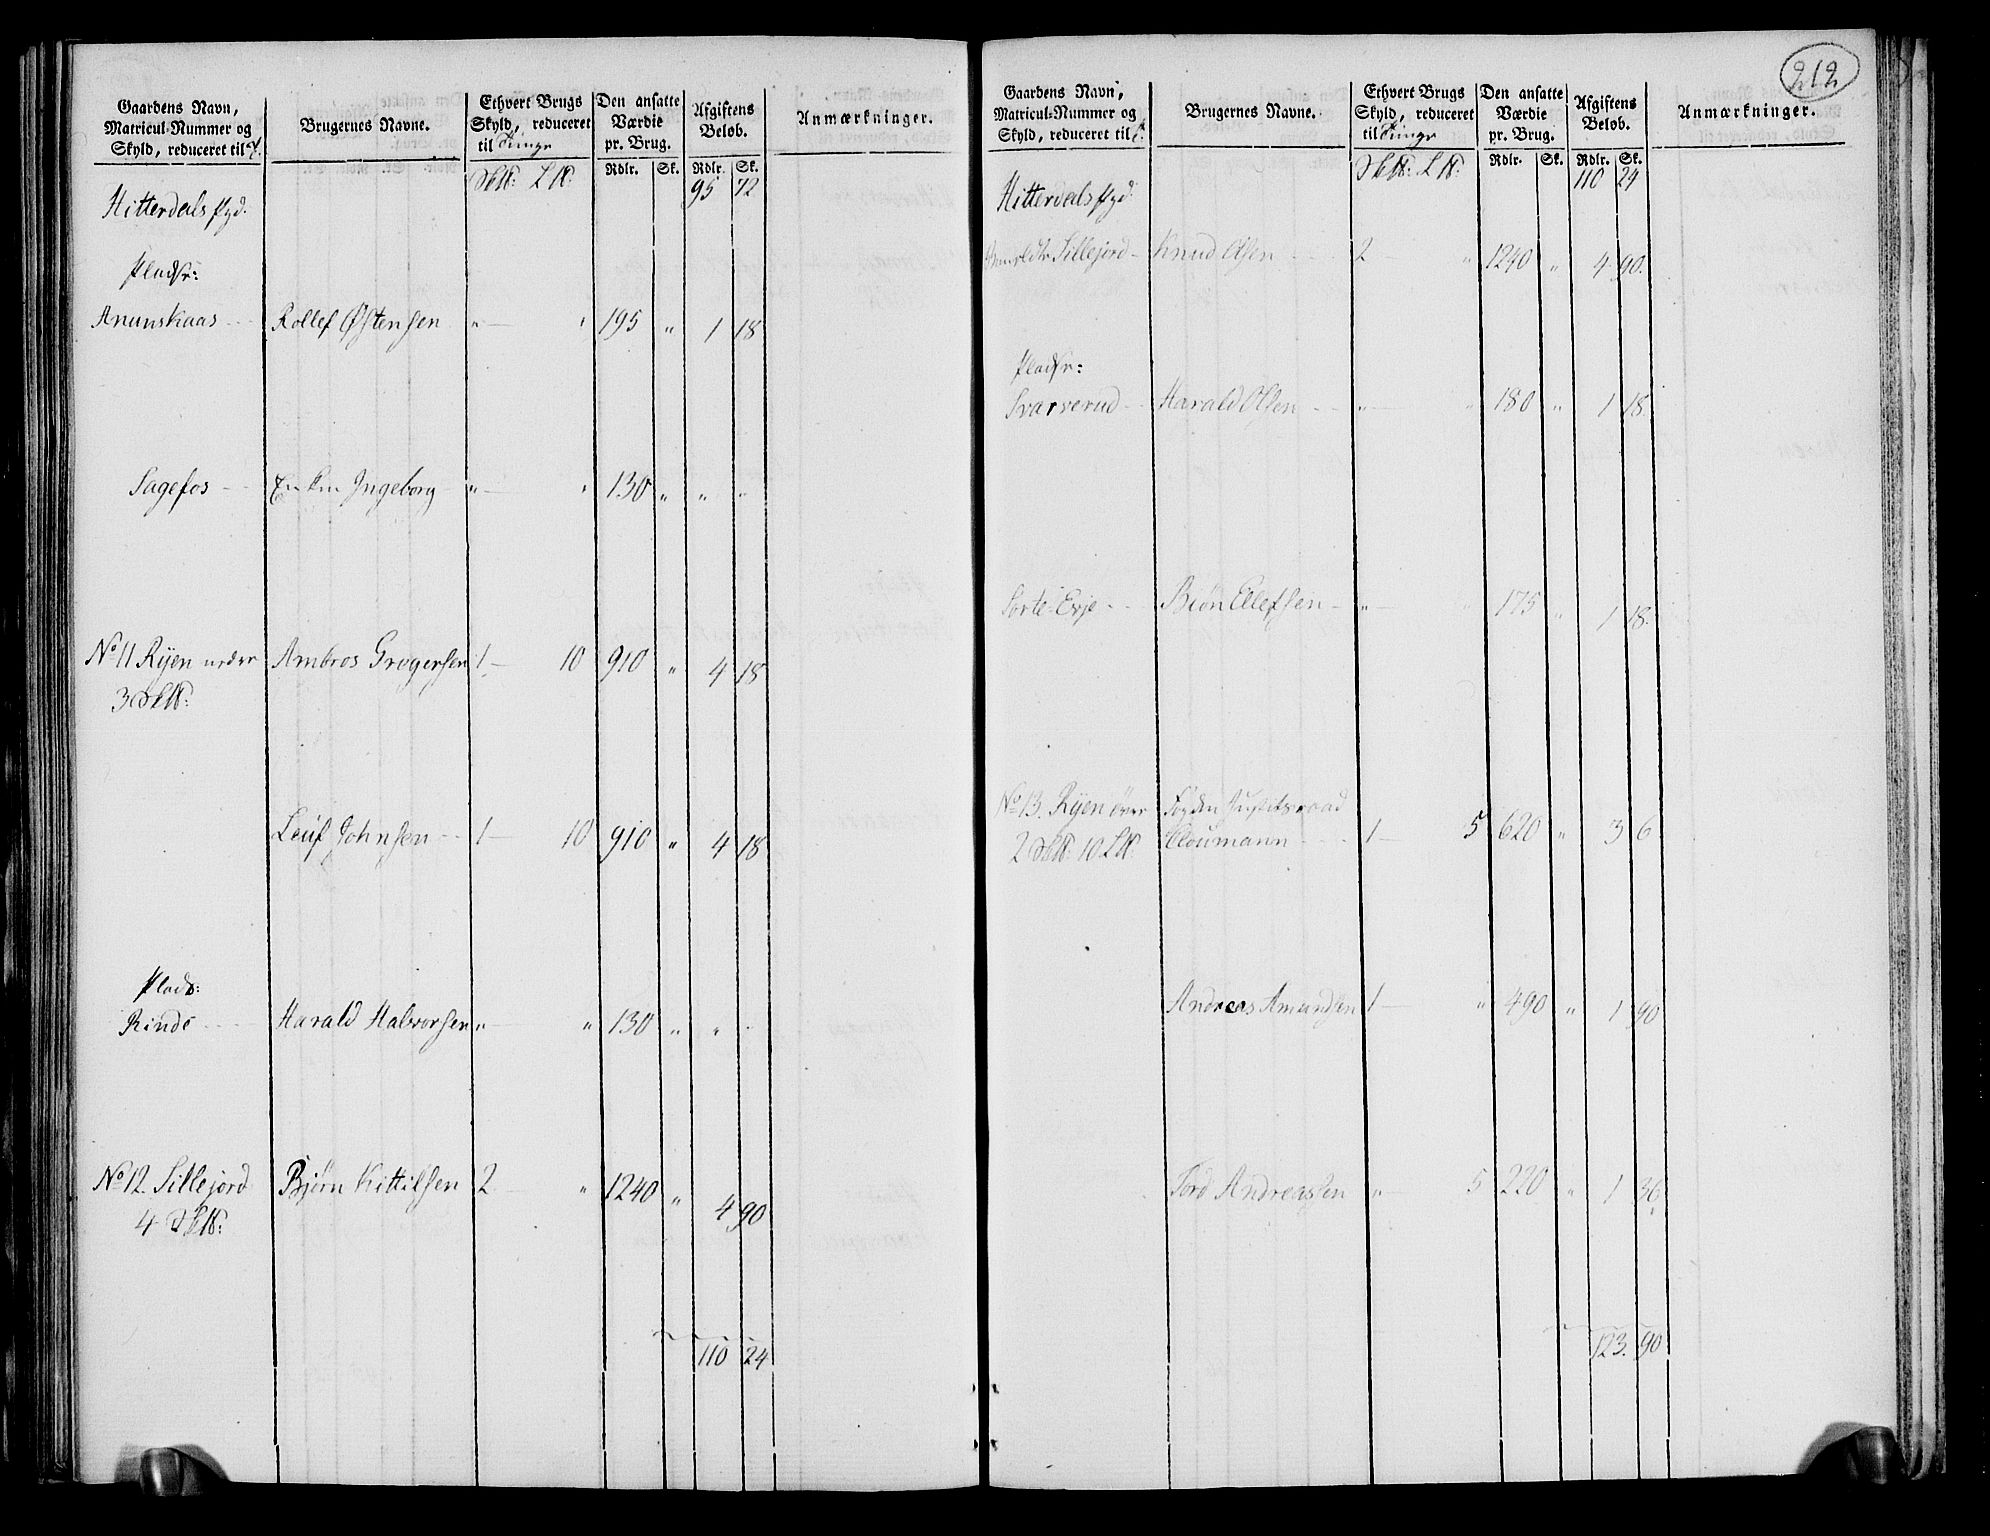 Gaardens Navn, Matricul-Nummer og Skyld, reduceret til
Brugernes Navne.
Ethvert Brugs Skyld, reduceret til Tunge
Den ansatte Værdie pr. Brug.
Afgiftens Beløb.
Anmærkninger.
Rdlr. Sk. Rdlr. Sk.
95 72
Hitterdals
Pladsr:
Anunskaas Rollef Østensen " " 195 " 1 18
Sagefos Enken Ingeborg " " 130 " " "
No 11 Ryen nedre Ambros Gregersen 1 10 910 " 4 18
3
Leuf Johnsen 1 10 910 " 4 18
Plads:
Rinde Harald Halvorsen " " 130 " " "
No 12. Lillejord Bjørn Kittilsen 2 " 1240 " 4 90
4
110 24
212
Gaardens Navn, Matricul-Nummer og Skyld, reduceret til
Brugernes Navne.
Ethvert Brugs Skyld, reduceret til Tunge
Den ansatte Værdie pr. Brug.
Afgiftens Beløb.
Anmærkninger.
Rdlr. Sk. Rdlr. Sk.
110 24
Hitterdals
Lillejord Knud Olsen 2 " 1240 " 4 90.
Pladsr:
Svarverud Harald Olsen " " 180 " 1 18
Sorte-Evje Biøn Ellefsen " " 175 " 1 18.
No 13. Ryen øvre Fogden Justitsraad
2 10 Cloumann 1 5 620 " 3 6
Andreas Amundsen 1 " 490 " 1 90
Tord Andreassen " 5 220 " 1 36
123. 90